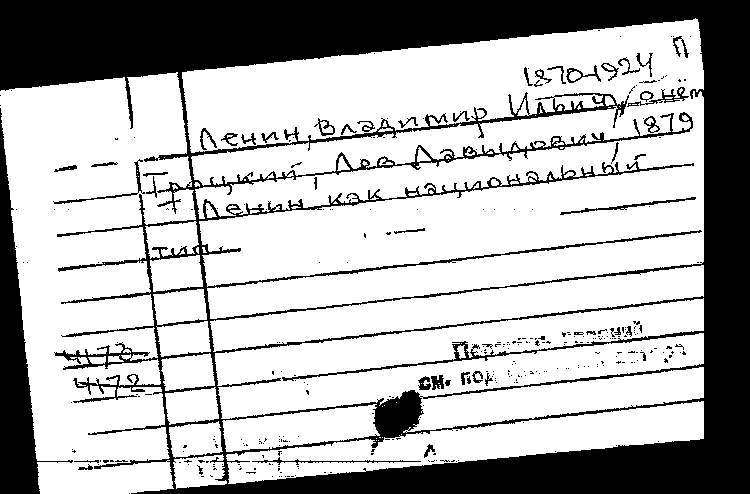 П
1870-1924
Ленин, Владимир Ильич / о нём
Троцкий, Лев Давыдович, 1879
+ Ленин как национальный
тип.
4173
4172
Перечень изданий
см. под фамилией автора
Л